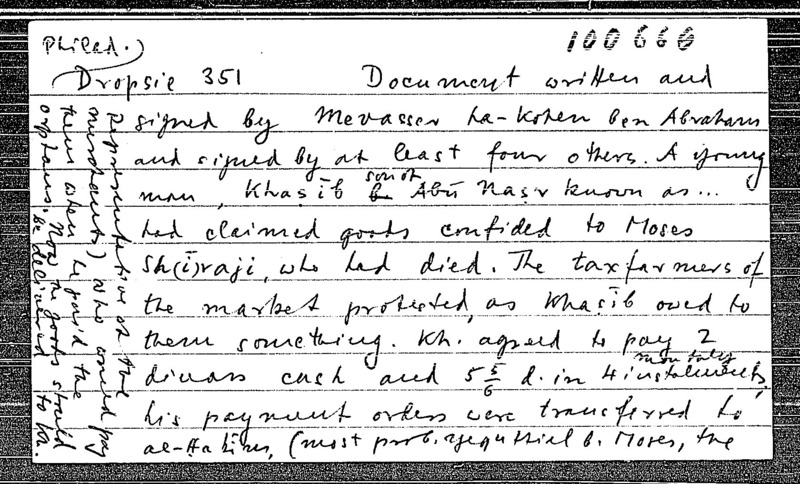 Philad.)
100666
Dropsie 351 Document written and
signed by Mevasser ha-Kohen ben Abraham
and signed by at least four others. A young
man, Khaṣīb son of Abū Naṣr known as...
had claimed goods confided to Moses
Sh(i)raji, who had died. The tax farmers of
the market protested, as Khaṣīb owed to
them something. Kh. agreed to pay 2
dinars cash and 5 5/6 d. in 4 monthly instalments,
his payment orders were transferred to
al-Hakim, (most prob. Yequthiel b. Moses, the
Representative of the
merchants) who would pay
them when he paid the
orphans. Now the goods should
be delivered to Kh.